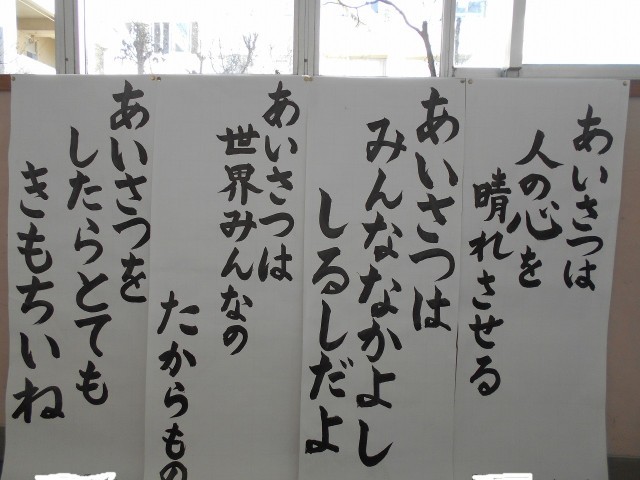 あいさつは
人の心を
晴れさせる
あいさつは
みんななかよし
しるしだよ
あいさつは
世界みんなの
たからもの
あいさつを
したらとても
きもちいね